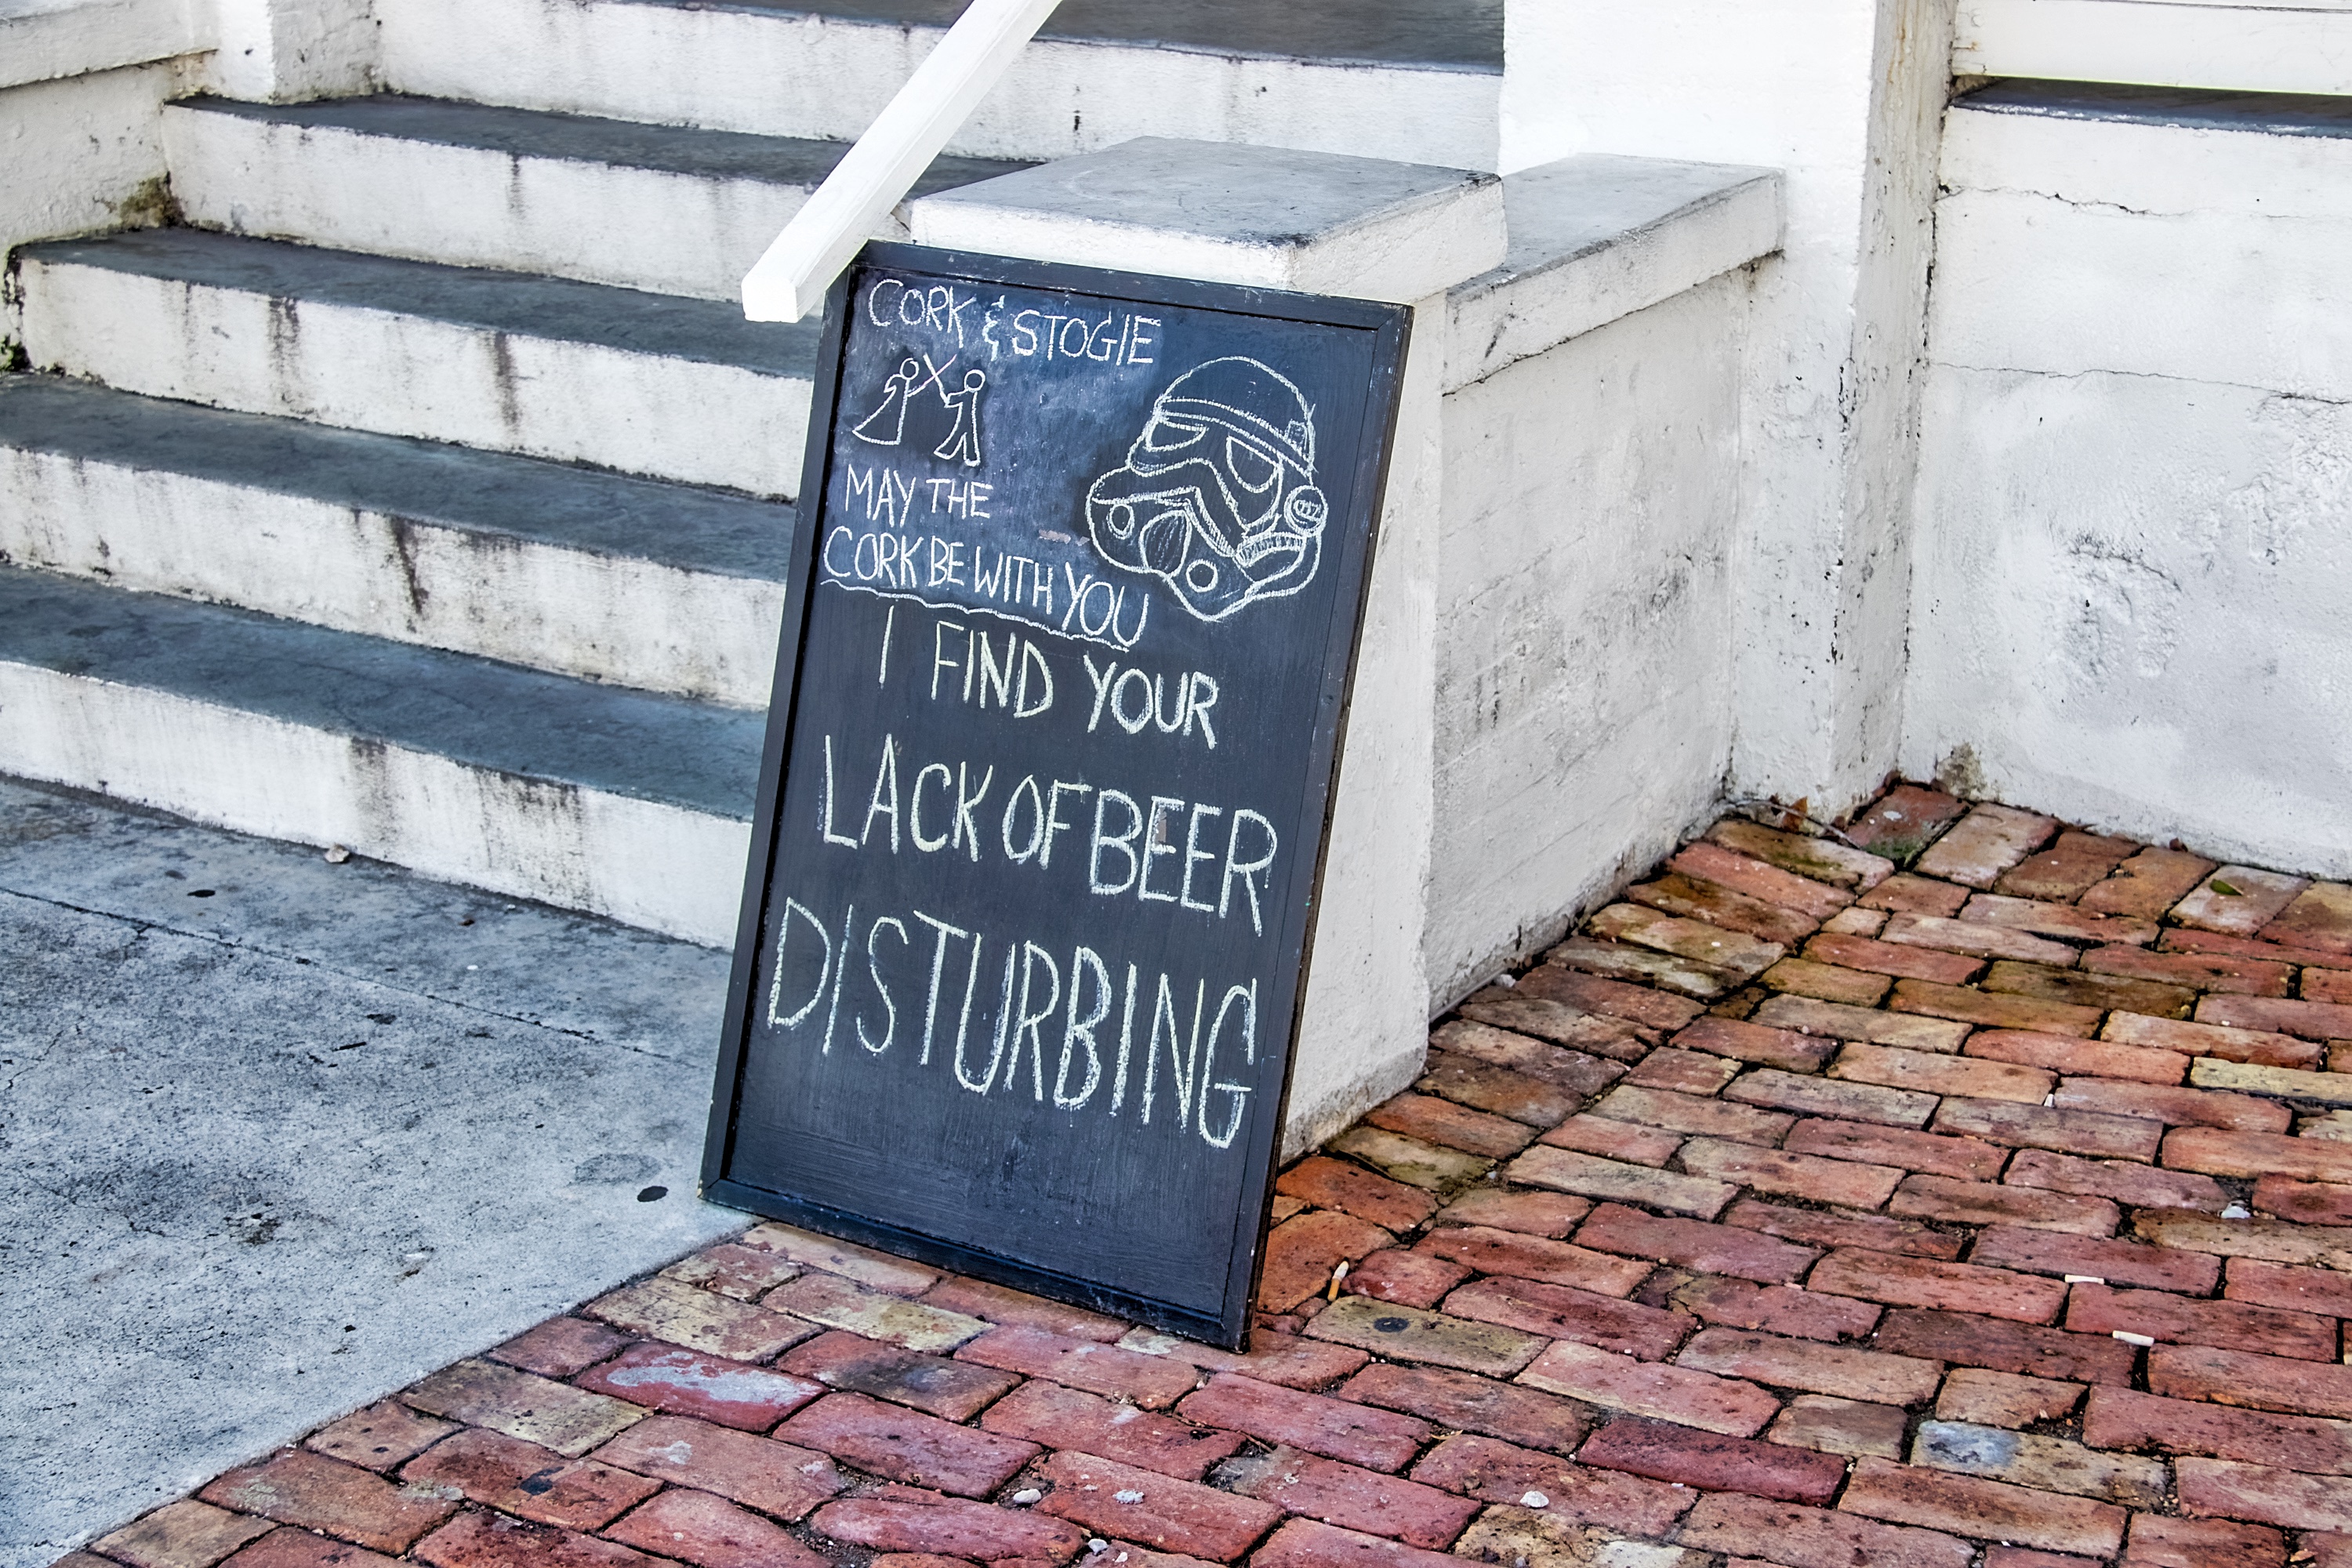 CORK & STOGIE
MAY THE
CORK BE WITH YOU
I FIND YOUR
LACK OF BEER
DISTURBING